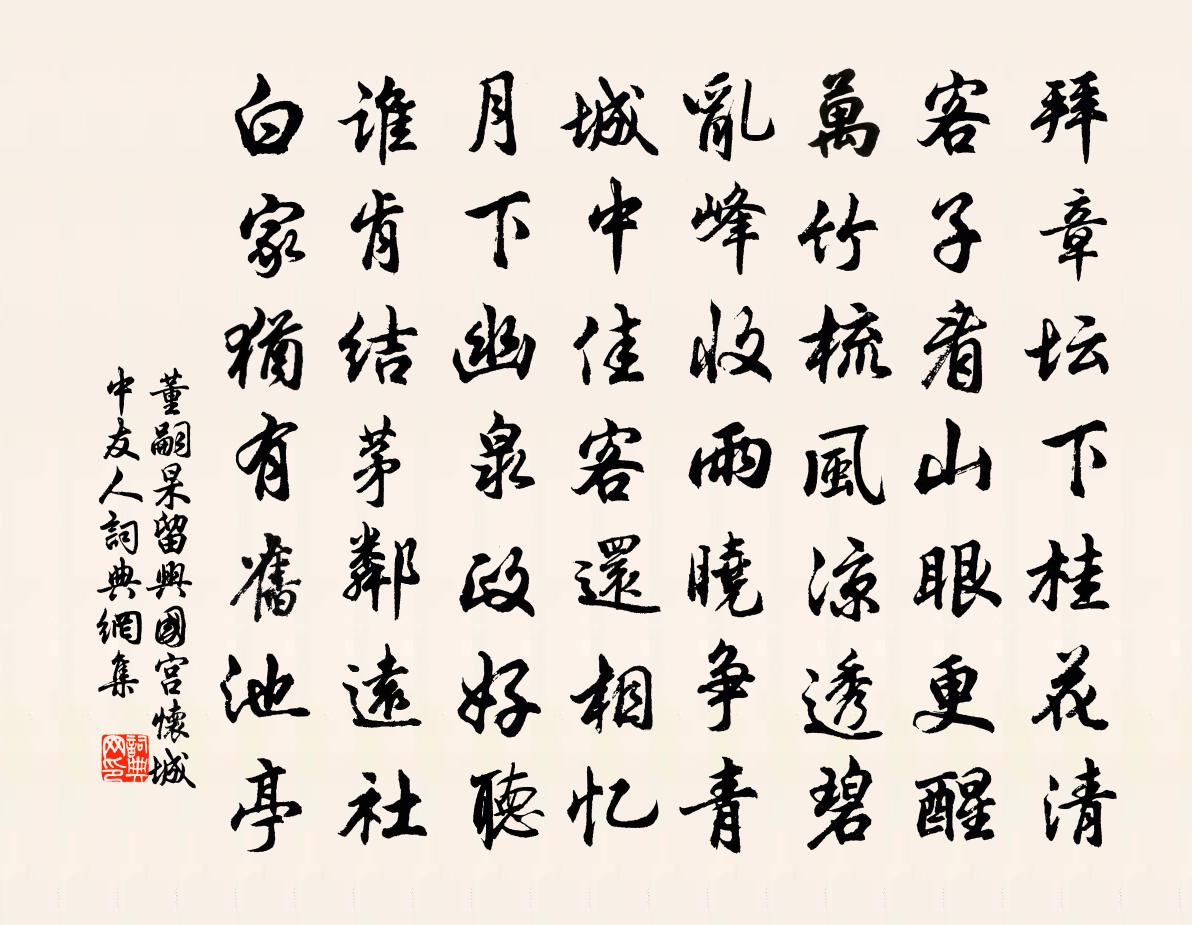 拜章坛下桂花清
客子看山眼更醒
萬竹梳風涼透碧
亂峰收雨曉争青
城中佳客還相忆
月下幽泉政好聽
誰肯结茅鄰遠社
白家猶有舊池亭
董嗣杲留興國宫懷城
中友人詞典網集
詞典
网印